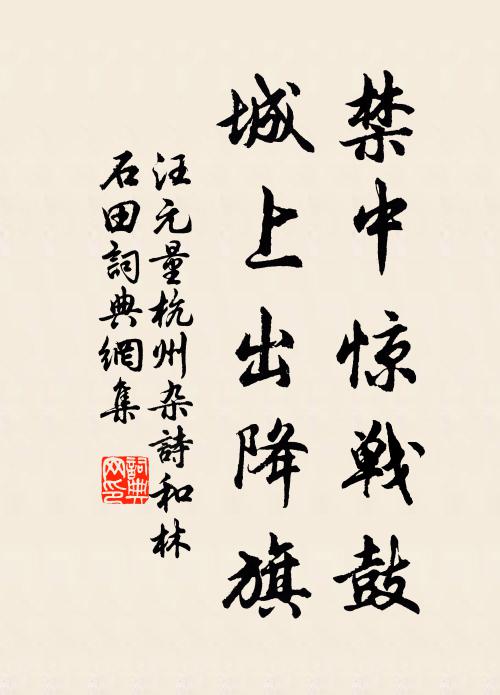 禁中惊戦鼓
城上出降旗
汪元量杭州杂詩和林
石田詞典網集
詞典
网印